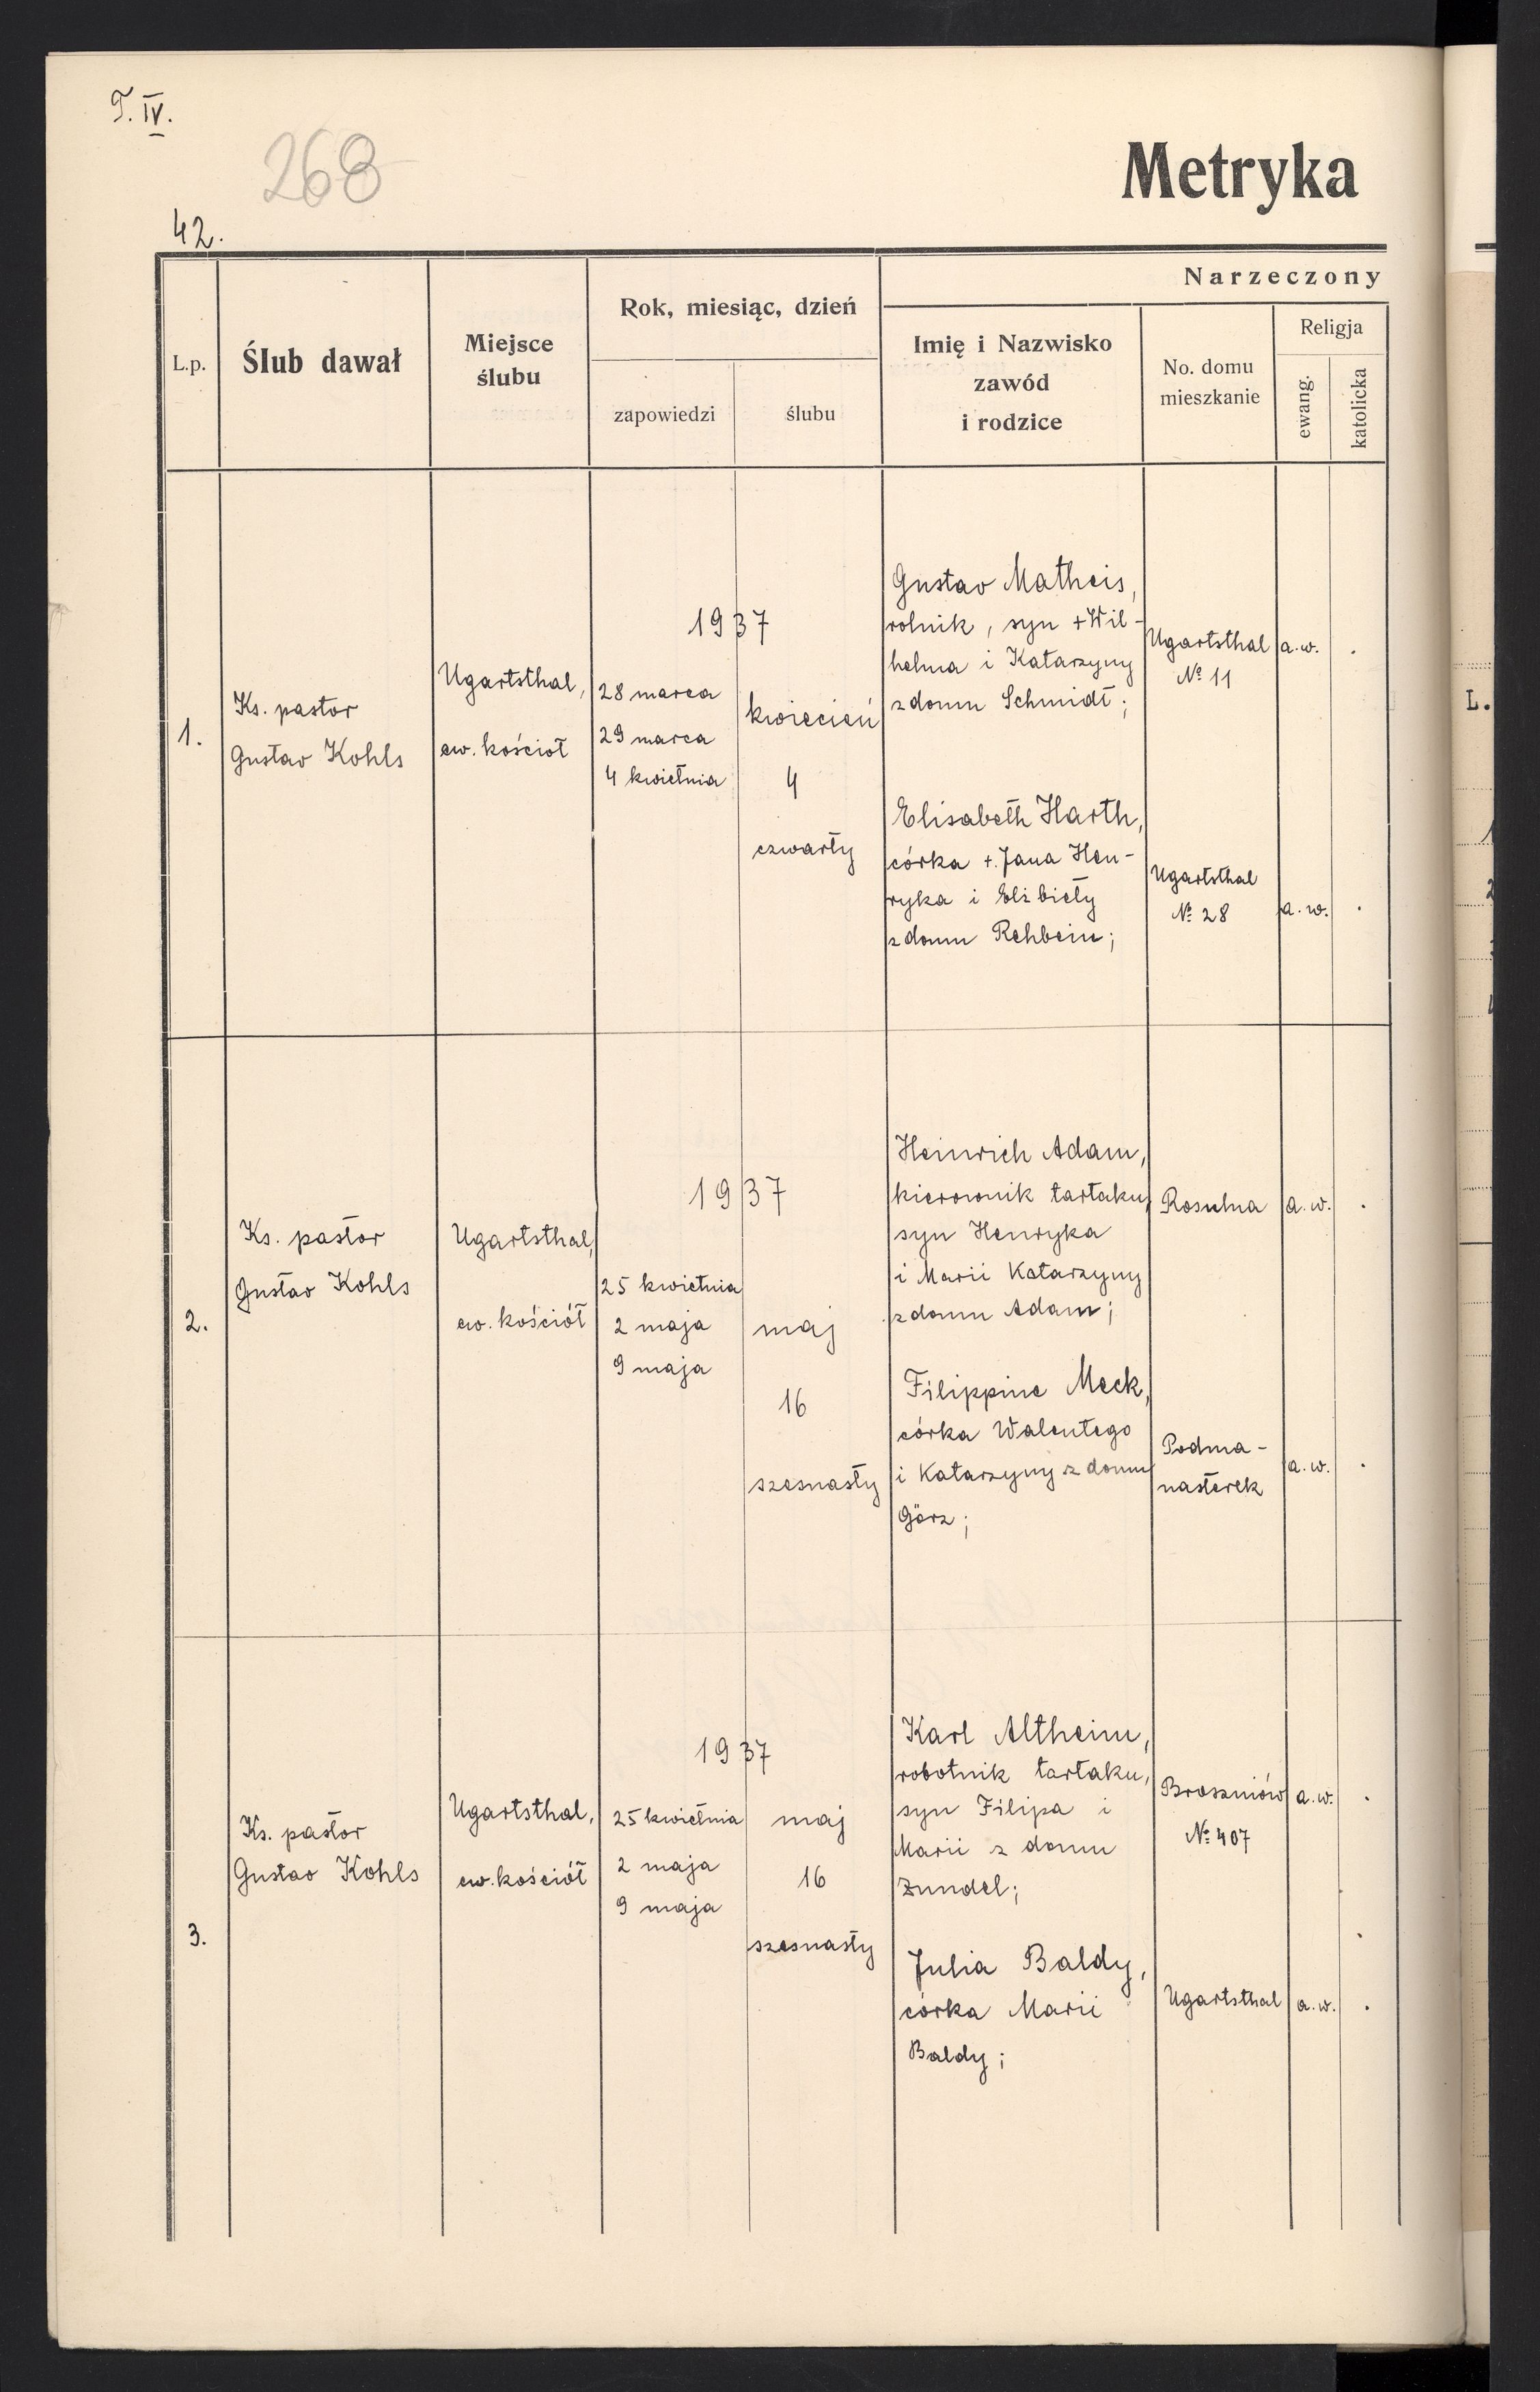 T. IV.
268
42.
Metryka
Narzeczony
L.p.
Ślub dawał
Miejsce
ślubu
Rok, miesiąc, dzień
zapowiedzi
ślubu
Imię i Nazwisko
zawód
i rodzice
No. domu
mieszkanie
Religja
ewang.
katolicka
1.
Ks. pastor
Gustav Kohls
Ugartsthal,
ew. kościoł
1937
28 marca
29 marca
4 kwietnia
kwiecień
4
czwarty
Gustav Matheis,
rolnik, syn + Wil-
helma i Katarzyny
z domu Schmidt;
Ugartsthal
№ 11
a.w.
.
Elisabeth Harth,
córka +. Jana Hen-
ryka i Elżbiety
z domu Rehbein;
Ugartsthal
№ 28
a.w.
.
2.
Ks. pastor
Gustav Kohls
Ugartsthal,
ew. kościół
1937
25 kwietnia
2 maja
9 maja
maj
16
szesnasty
Heinrich Adam,
kierownik tartaku,
syn Henryka
i Marii Katarzyny
z domu Adam;
Rosulna
a.w.
.
Filippine Meck,
córka Walentego
i Katarzyny z domu
Görz;
Podma-
nasterek
a.w.
.
3.
Ks. pastor
Gustav Kohls
Ugartsthal,
ew. kościół
1937
25 kwietnia
2 maja
9 maja
maj
16
szesnasty
Karl Altheim,
robotnik tartaku,
syn Filipa i
Marii z domu
Zundel;
Broszniów
№ 407
a.w.
.
Julia Baldy,
córka Marii
Baldy;
Ugartsthal
a.w.
.
L.